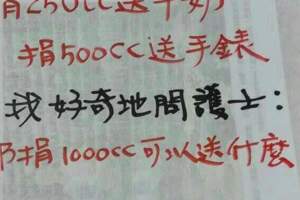 捐250cc送牛奶
捐500cc送手錶
我好奇地問護士:
那捐1000cc可以送什麼